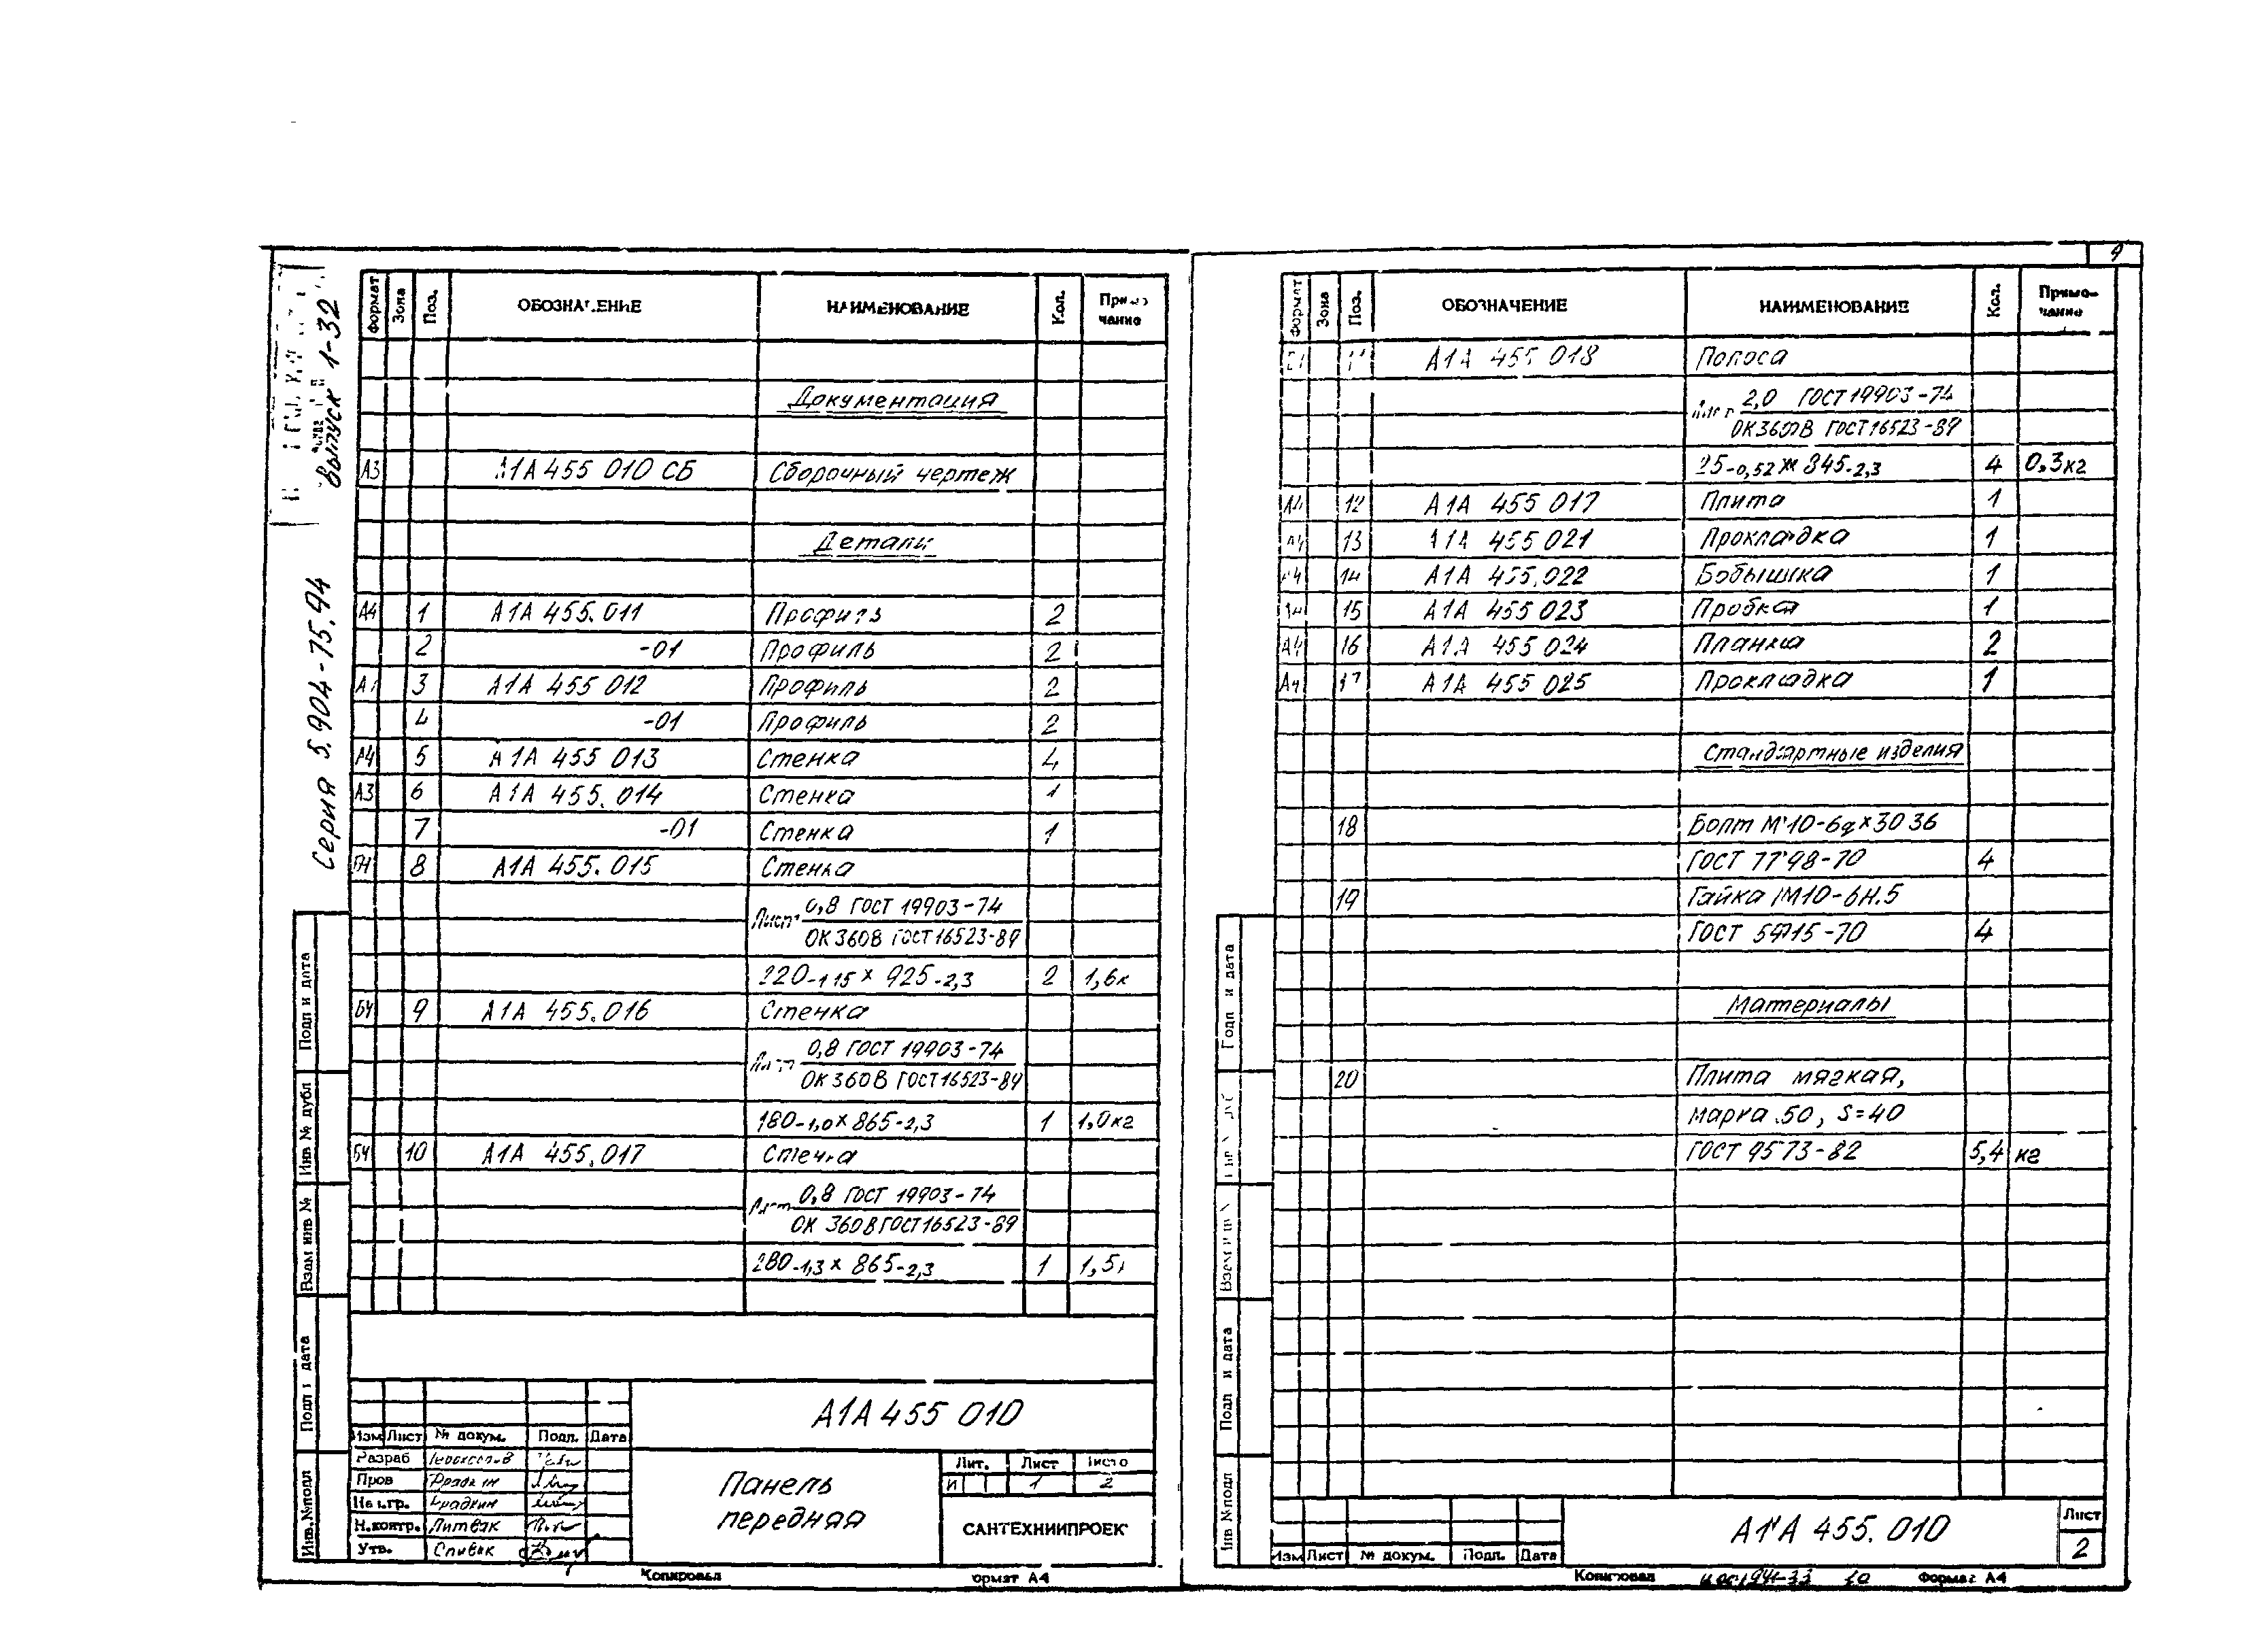 9
Серия 5.904-75.94
выпуск 1-32
Формат Зона Поз. ОБОЗНАЧЕНИЕ НАИМЕНОВАНИЕ Кол. Примечание
Документация
А3 А1А 455 010 СБ Сборочный чертеж
Детали
А4 1 А1А 455.011 Профиль 2
2 -01 Профиль 2
3 А1А 455 012 Профиль 2
4 -01 Профиль 2
А4 5 А1А 455 013 Стенка 4
А3 6 А1А 455.014 Стенка 1
7 -01 Стенка 1
БЧ 8 А1А 455.015 Стенка
Лист 0,8 ГОСТ 19903-74
ОК360В ГОСТ16523-89
220-1,15 × 925-2,3 2 1,6к
БЧ 9 А1А 455.016 Стенка
Лист 0,8 ГОСТ 19903-74
ОК360В ГОСТ16523-89
180-1,0 × 865-2,3 1 1,0кг
БЧ 10 А1А 455.017 Стенка
Лист 0,8 ГОСТ 19903-74
ОК 360В ГОСТ16523-89
280-1,3 × 865-2,3 1 1,5
Подп и дата
Инв № дубл
Взам инв №
Подп и дата
Инв.№подл
А1А 455 010
Изм Лист № докум. Подп. Дата
Разраб
Пров
Нач.гр.
Н.контр. Литвак
Утв. Спивак
Панель
передняя
Лит. Лист Листо
И 1 2
САНТЕХНИИПРОЕК
Копировал Формат А4
Формат Зона Поз. ОБОЗНАЧЕНИЕ НАИМЕНОВАНИЕ Кол. Примечание
БЧ 11 А1А 455 018 Полоса
Лист 2,0 ГОСТ19903-74
ОК360В ГОСТ16523-89
25-0,52 × 845-2,3 4 0,3кг
А4 12 А1А 455 017 Плита 1
А4 13 А1А 455 021 Прокладка 1
А4 14 А1А 455.022 Бобышка 1
А4 15 А1А 455 023 Пробка 1
А4 16 А1А 455 024 Планка 2
А4 17 А1А 455 025 Прокладка 1
Стандартные изделия
18 Болт М10-6g×30 36
ГОСТ 7798-70 4
19 Гайка М10-6Н.5
ГОСТ 5915-70 4
Материалы
20 Плита мягкая,
марка 50, S=40
ГОСТ 9573-82 5,4 кг
Подп и дата
Взам инв №
Подп и дата
Инв №подл
Изм Лист № докум. Подп. Дата
А1А 455.010
Лист
2
Копировал Формат А4